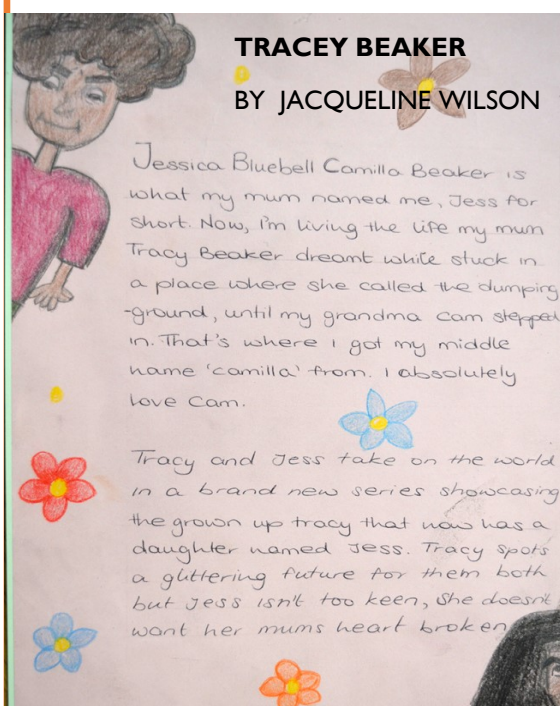 TRACEY BEAKER
BY JACQUELINE WILSON
Jessica Bluebell Camilla Beaker is
what my mum named me, Jess for
short. Now, I'm living the life my mum
Tracy Beaker dreamt while stuck in
a place where she called the dumping
-ground, until my grandma cam stepped
in. That's where I got my middle
name 'camilla' from. I absolutely
love Cam.
Tracy and Jess take on the world
in a brand new series showcasing
the grown up tracy that now has a
daughter named Jess. Tracy spots
a glittering future for them both
but Jess isn't too keen, she doesn't
want her mums heart broken